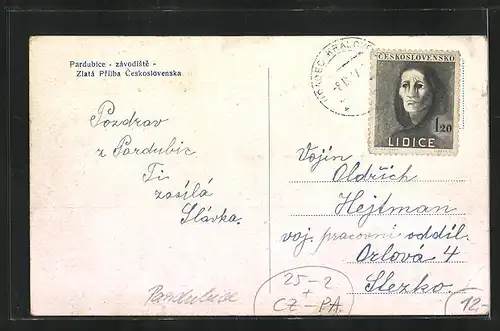 Pardubice - závodiště -
Zlatá Přilba Československa
HRADEC KRÁLOVÉ
ČESKOSLOVENSKO
1.20
LIDICE
Pozdrav
z Pardubic
Ti
zasílá
Slávka.
Vojín
Oldřich
Hejtman
voj. pracovní oddíl.
Orlová 4
Slezko.
Pardubice
25-2
+
CZ-PA.
12.-